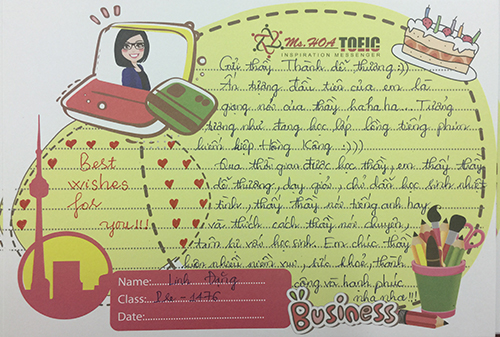 Ms.HOA TOEIC
INSPIRATION MESSENGER
Gửi thầy Thành dễ thương :))
Ấn tượng đầu tiên của em là
giọng nói của thầy hahaha... Tưởng
tượng như đang học lớp lồng tiếng phim
kiếm hiệp Hồng Kông :)))
Qua thời gian được học thầy, em thấy thầy
dễ thương, dạy giỏi, chỉ dẫn học sinh nhiệt
tình, thầy thầy nói tiếng anh hay
và thích cách thầy nói chuyện,
tâm sự vào học sinh. Em chúc thầy
luôn nhiều niềm vui, sức khoẻ, thành
công và hạnh phúc
nha nha!!!
Best
wishes
for
you!!!
Name: Linh Đặng
Class: 1476
Date:
Business